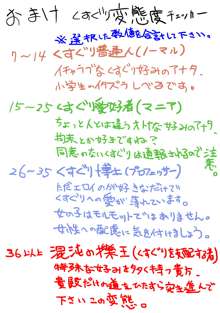 おまけ くすぐり変態度チェッカー
※選択した数値を合計して下さい。
7〜14 くすぐり普通人(ノーマル)
イチャラブなくすぐり好みのアナタ。
小学生の付き合うしべるです。
15〜25 くすぐり愛好者(マニア)
ちょっと人とは違うすけな好みのアナタ
拘束とか好きですね?
同意のないくすぐりは通報されるので注意。
26〜35 くすぐり博士(プロフェッサー)
ただエロイのが好きなだけで
くすぐりへの愛が薄れています。
女の子はモルモットではありません。
女性への配慮に気を付けましょう。
36以上 混沌の擽王(くすぐりを支配する者)
特殊な好みを多く持つ貴方。
貴殿だけの道をひたすら突き進んで
下さいこの変態。